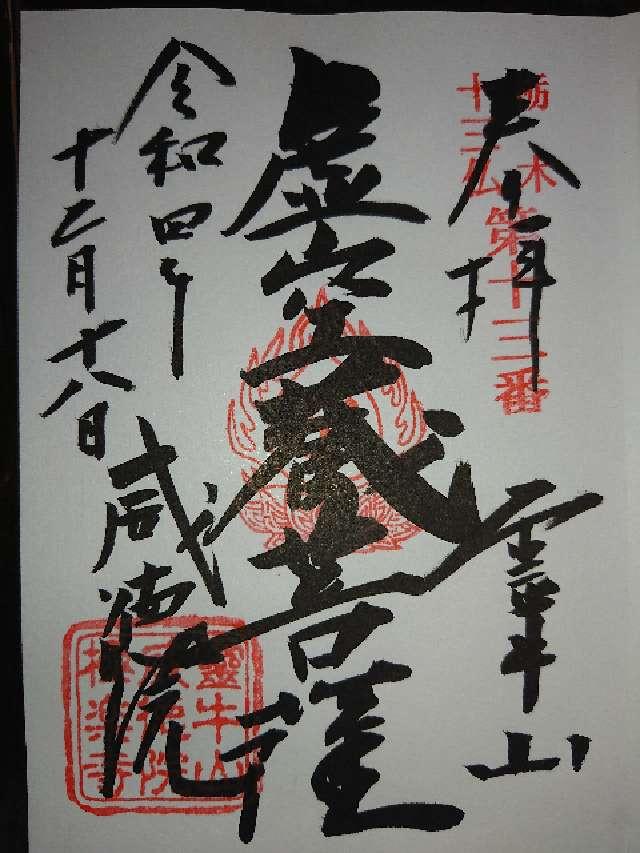 奉拝
栃木
十三仏
第十三番
霊牛山
虚空蔵菩薩
令和四年
十二月十八日
威徳院
靈牛山
威徳院
極楽寺